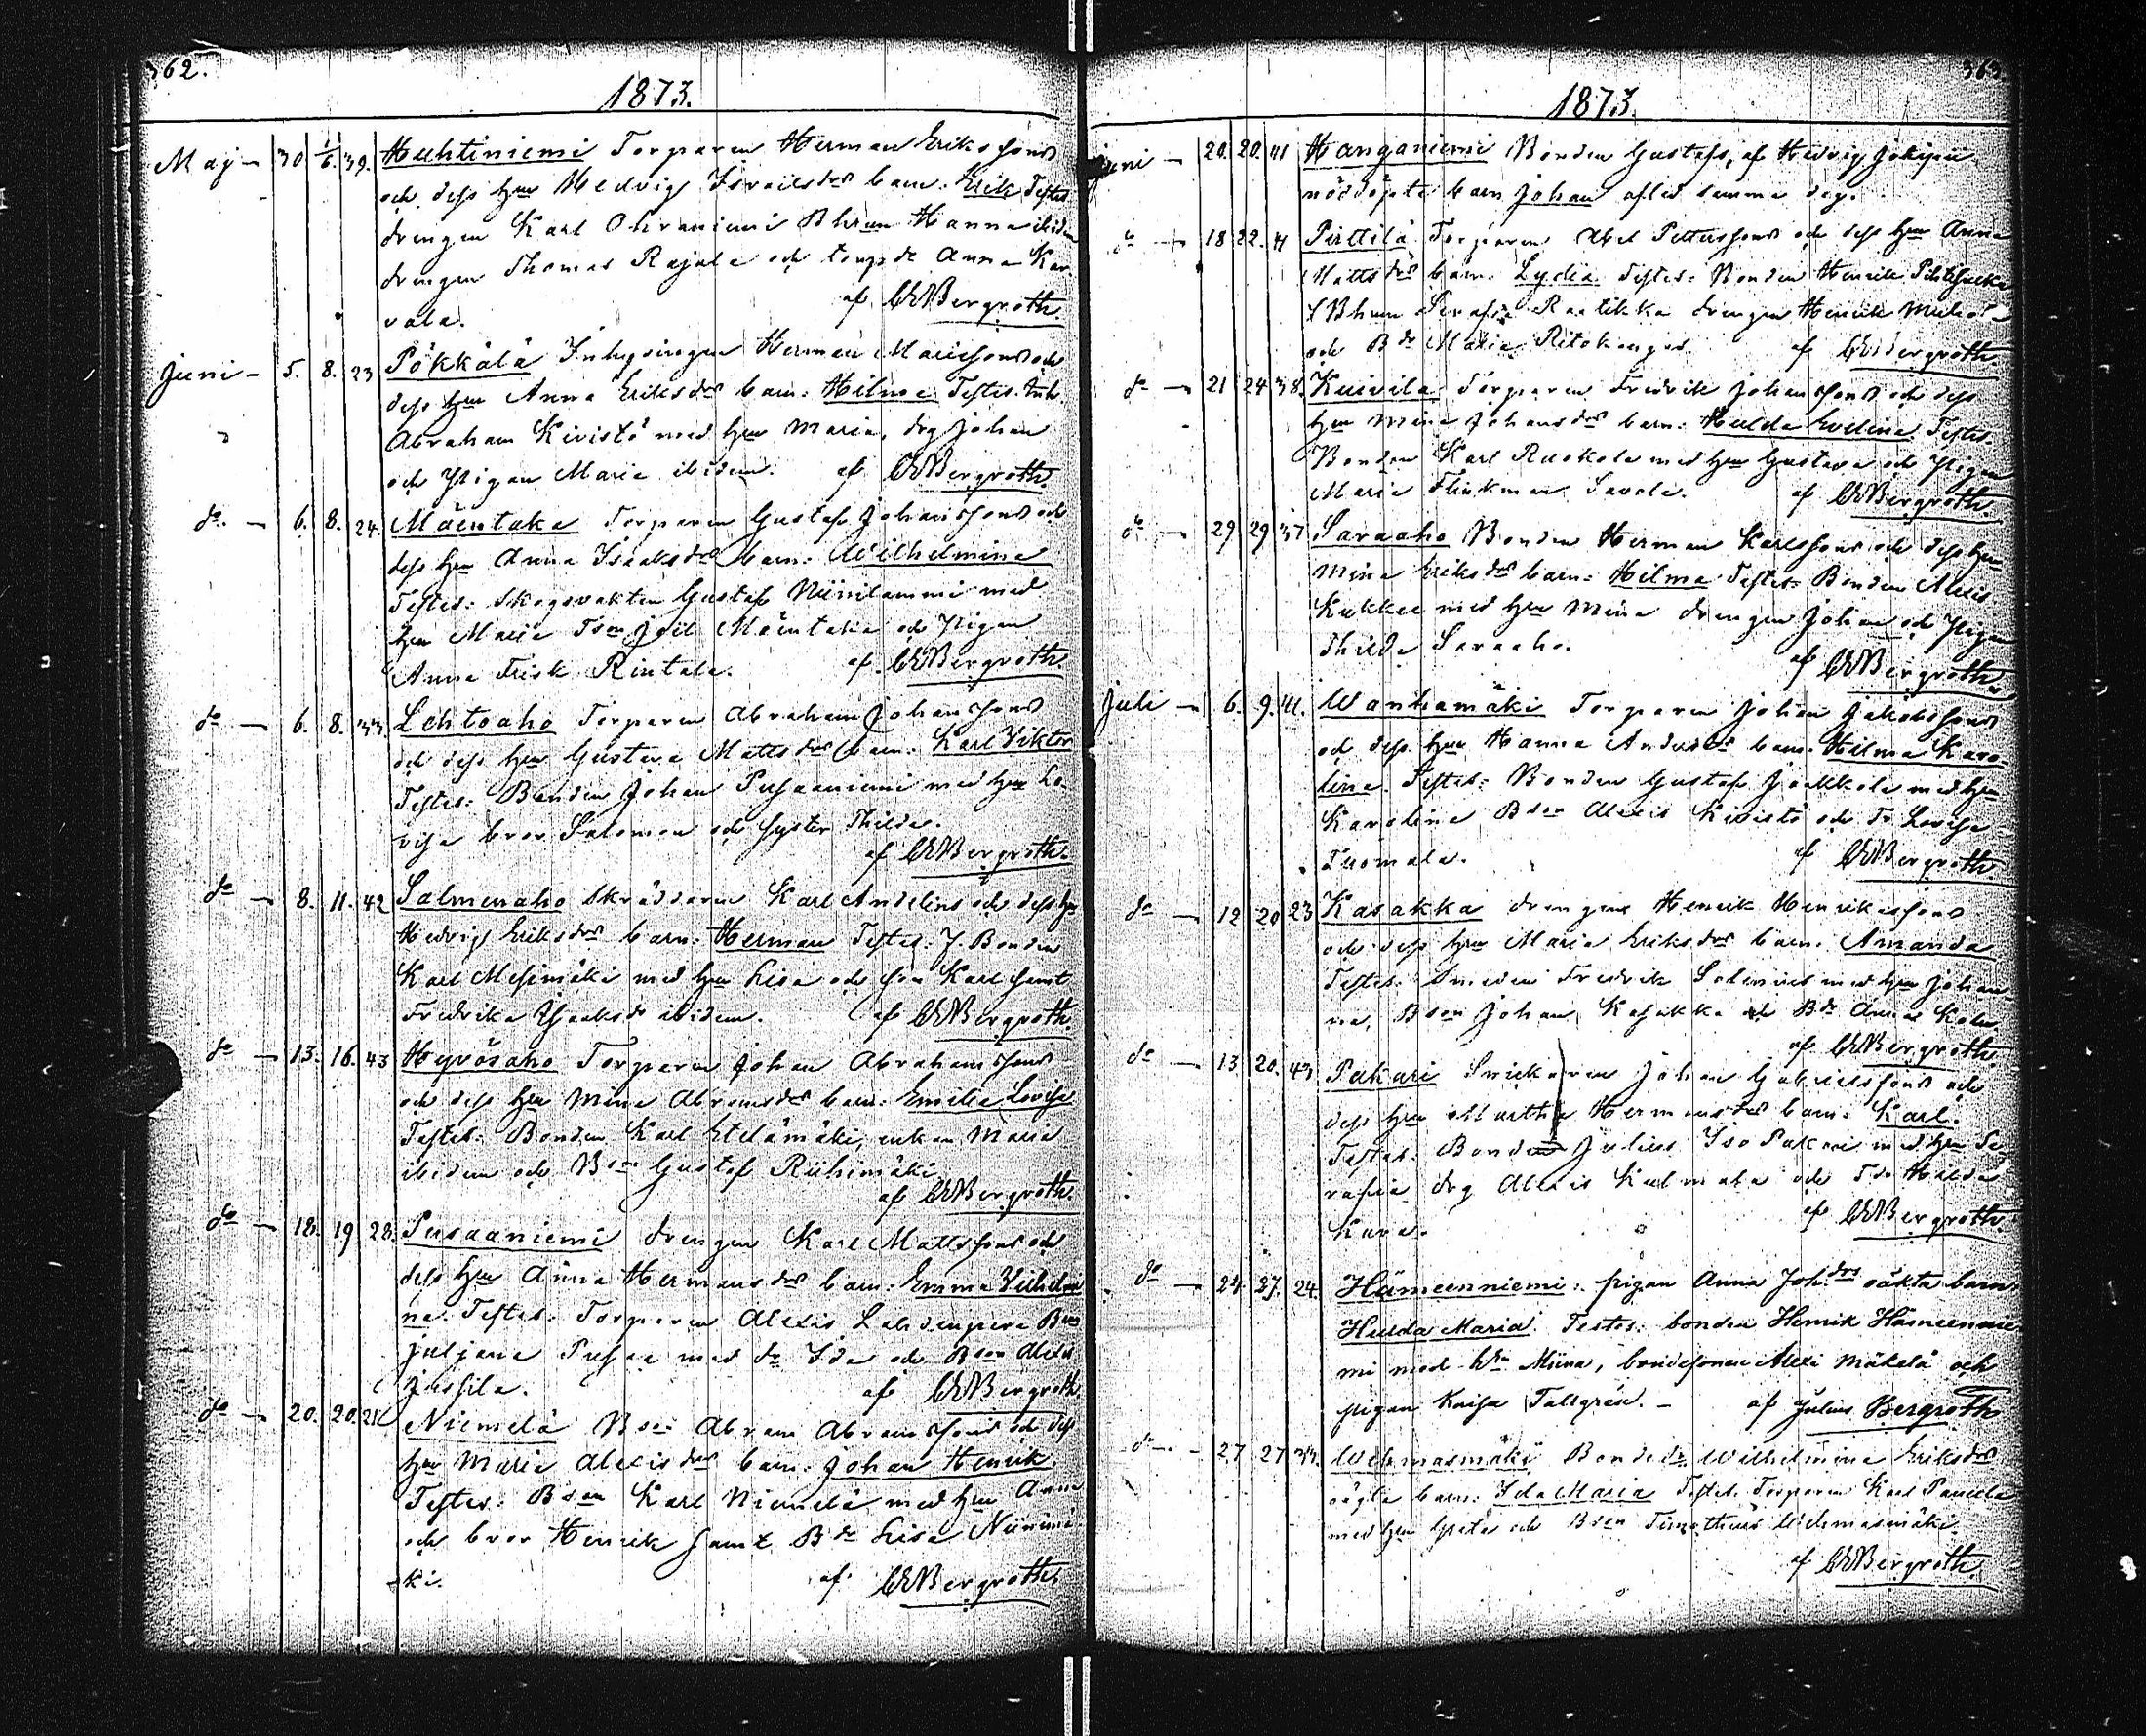 362.
1873.
Maj — 30 1/6. 39. Huhtiniemi Torparen Herman Erikssons
och dess hru Hedvig Israelsdrs barn: Erik Testes
drengen Karl Ohraniemi Bhrun Hanna ibidm
drengen Thomas Rajala och torp dr Anna Kar
vala. af CEBergroth.
Juni — 5. 8. 23 Pökkälä Inhysingen Herman Mariessons och
dess hru Anna Eriksdrs barn: Hilma Testes: Inh.
Abraham Kivistö med hru Maria, drg Johan
och Pigan Maria ibidem. af CEBergroth
do. — 6. 8. 24. Mäentaka Torparen Gustaf Johanssons och
dess hru Anna Isaaksdrs barn: Wilhelmina
Testes: Skogsvakten Gustaf Niinilammi med
hru Maria Tson Joel Mäentaka och Pigan
Anna Frisk Rintala. af CEBergroth
do — 6. 8. 33 Lehtoaho Torparen Abraham Johanssons
och dess hru Gustava Mattsdrs barn: Karl Viktor
Testes: Bonden Johan Pusaaniemi med hru Lo-
visa bror Salomon och syster Thilda.
af CEBergroth.
do — 8. 11. 42 Salmenaho Skräddaren Karl Andelins och dess hru
Hedvig Eriksdrs barn: Herman Testes: f. Bonden
Karl Mesimäki med hru Lisa och son Karl samt
Fredrika Isaaksdr ibidem. af CEBergroth.
do — 13. 16. 43 Hyvösaho Torparen Johan Abrahamssons
och dess hru Mina Abramsdrs barn: Emilia Lovisa
Testes: Bonden Karl Etelämäki, enkan Maria
ibidem och Bson Gustaf Riihimäki
af CEBergroth.
do — 18. 19 28. Pusaaniemi drengen Karl Mattssons och
dess hru Anna Hermansdrs barn: Emma Vilhelmi
na. Testes: Torparen Alexis Lahdenperä Bhru
Juljana Pusaa med dr Ida och Bson Alexis
Jussila. af CEBergroth
do — 20. 20. 25 Niemelä Bson Abram Abramssons och dess
hru Maria Alexisdrs barn: Johan Henrik.
Testes: Bson Karl Niemelä med hru Anna
och bror Henrik samt Bdr Lisa Niinimä
ki. af CEBergroth
363.
1873.
Juni — 20. 20. 41 Hanganiemi Bonden Gustafs, af Hedvig Jokipii
nöddöpte barn Johan afled samma dag.
do — 18 22. 41 Pirttilä Torparen Abel Petterssons och dess hru Anna
Mattsdrs barn: Lydia. Testes: Bonden Henrik
Bhrun Serafia Raatikka drengen Henrik
och Bdr Maria Ritokangas. af CEBergroth
do — 21 24 38. Kuivila Torparen Fredrik Johanssons och dess
hru Mina Johansdrs barn: Hulda Evelina Testes:
Bonden Karl Ruokola med hru Gustava och Pigan
Maria Flinkman Savola. af CEBergroth.
do — 29 29 37 Saraaho Bonden Herman Karlssons och dess hru
Mina Eriksdrs barn: Hilma Testes: Bonden Alexis
Kukkee med hru Mina drengen Johan och Pigan
Thilda Saraaho. af CEBergroth
Juli — 6. 9. 41. Wanhamäki Torparen Johan Jakobssons
och dess hru Hanna Andersdrs barn: Hilma Karo-
lina. Testes: Bonden Gustaf Jaakkola med hru
Karolina Bson Alexis Kivistö och Tr Lovisa
Tuomala. af CEBergroth
do — 12 20 23 Kasakka drengens Henrik Henrikssons
och dess hru Maria Eriksdrs barn: Amanda
Testes: Smeden Fredrik Salenius med hru Johan
na, Bson Johan Kasakka och Bdr Anna
af CEBergroth.
do — 13. 20. 43 Pakari Snickaren Johan Gabrielssons och
dess hru Martha Hermansdrs barn: Karl.
Testes: Bonden Julius Iso Pakari med hru Se
rafia drg Alexis Kulmala och Tdr Hilda
Kara. af CEBergroth.
do — 24. 27. 24. Hämeenniemi: pigan Anna Joh.drs oäkta barn:
Hulda Maria. Testes: bonden Henrik Hämeennie
mi med hru Miina, bondesonen Alexi Mäkelä och
pigan Kaisa Tallgrén. — af Julius Bergroth
do — 27 27 33. Wehmasmäki Bondedr Wilhelmina Eriksdrs
oägta barn: Ida Maria Testes: Torparen Karl Paucela
med hru Greta och Bson Timotheus Wehmasmäki.
af CEBergroth.